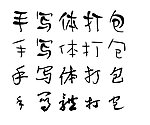 手写体打包
手写体打包
手写体打包
手写体打包